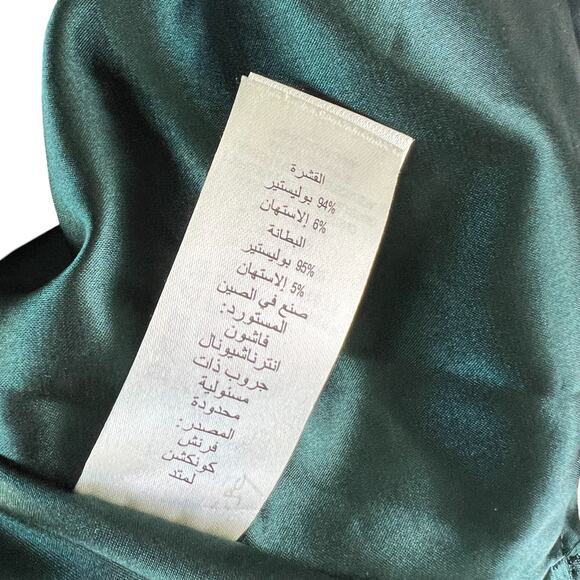 القشرة
94% بوليستير
6% إلاستهان
البطانة
95% بوليستير
5% إلاستهان
صنع في الصين
المستورد:
فاشون
انترناشيونال
جروب ذات
مسئولية
محدودة
المصدر:
فرنش
كونكشن
لمتد